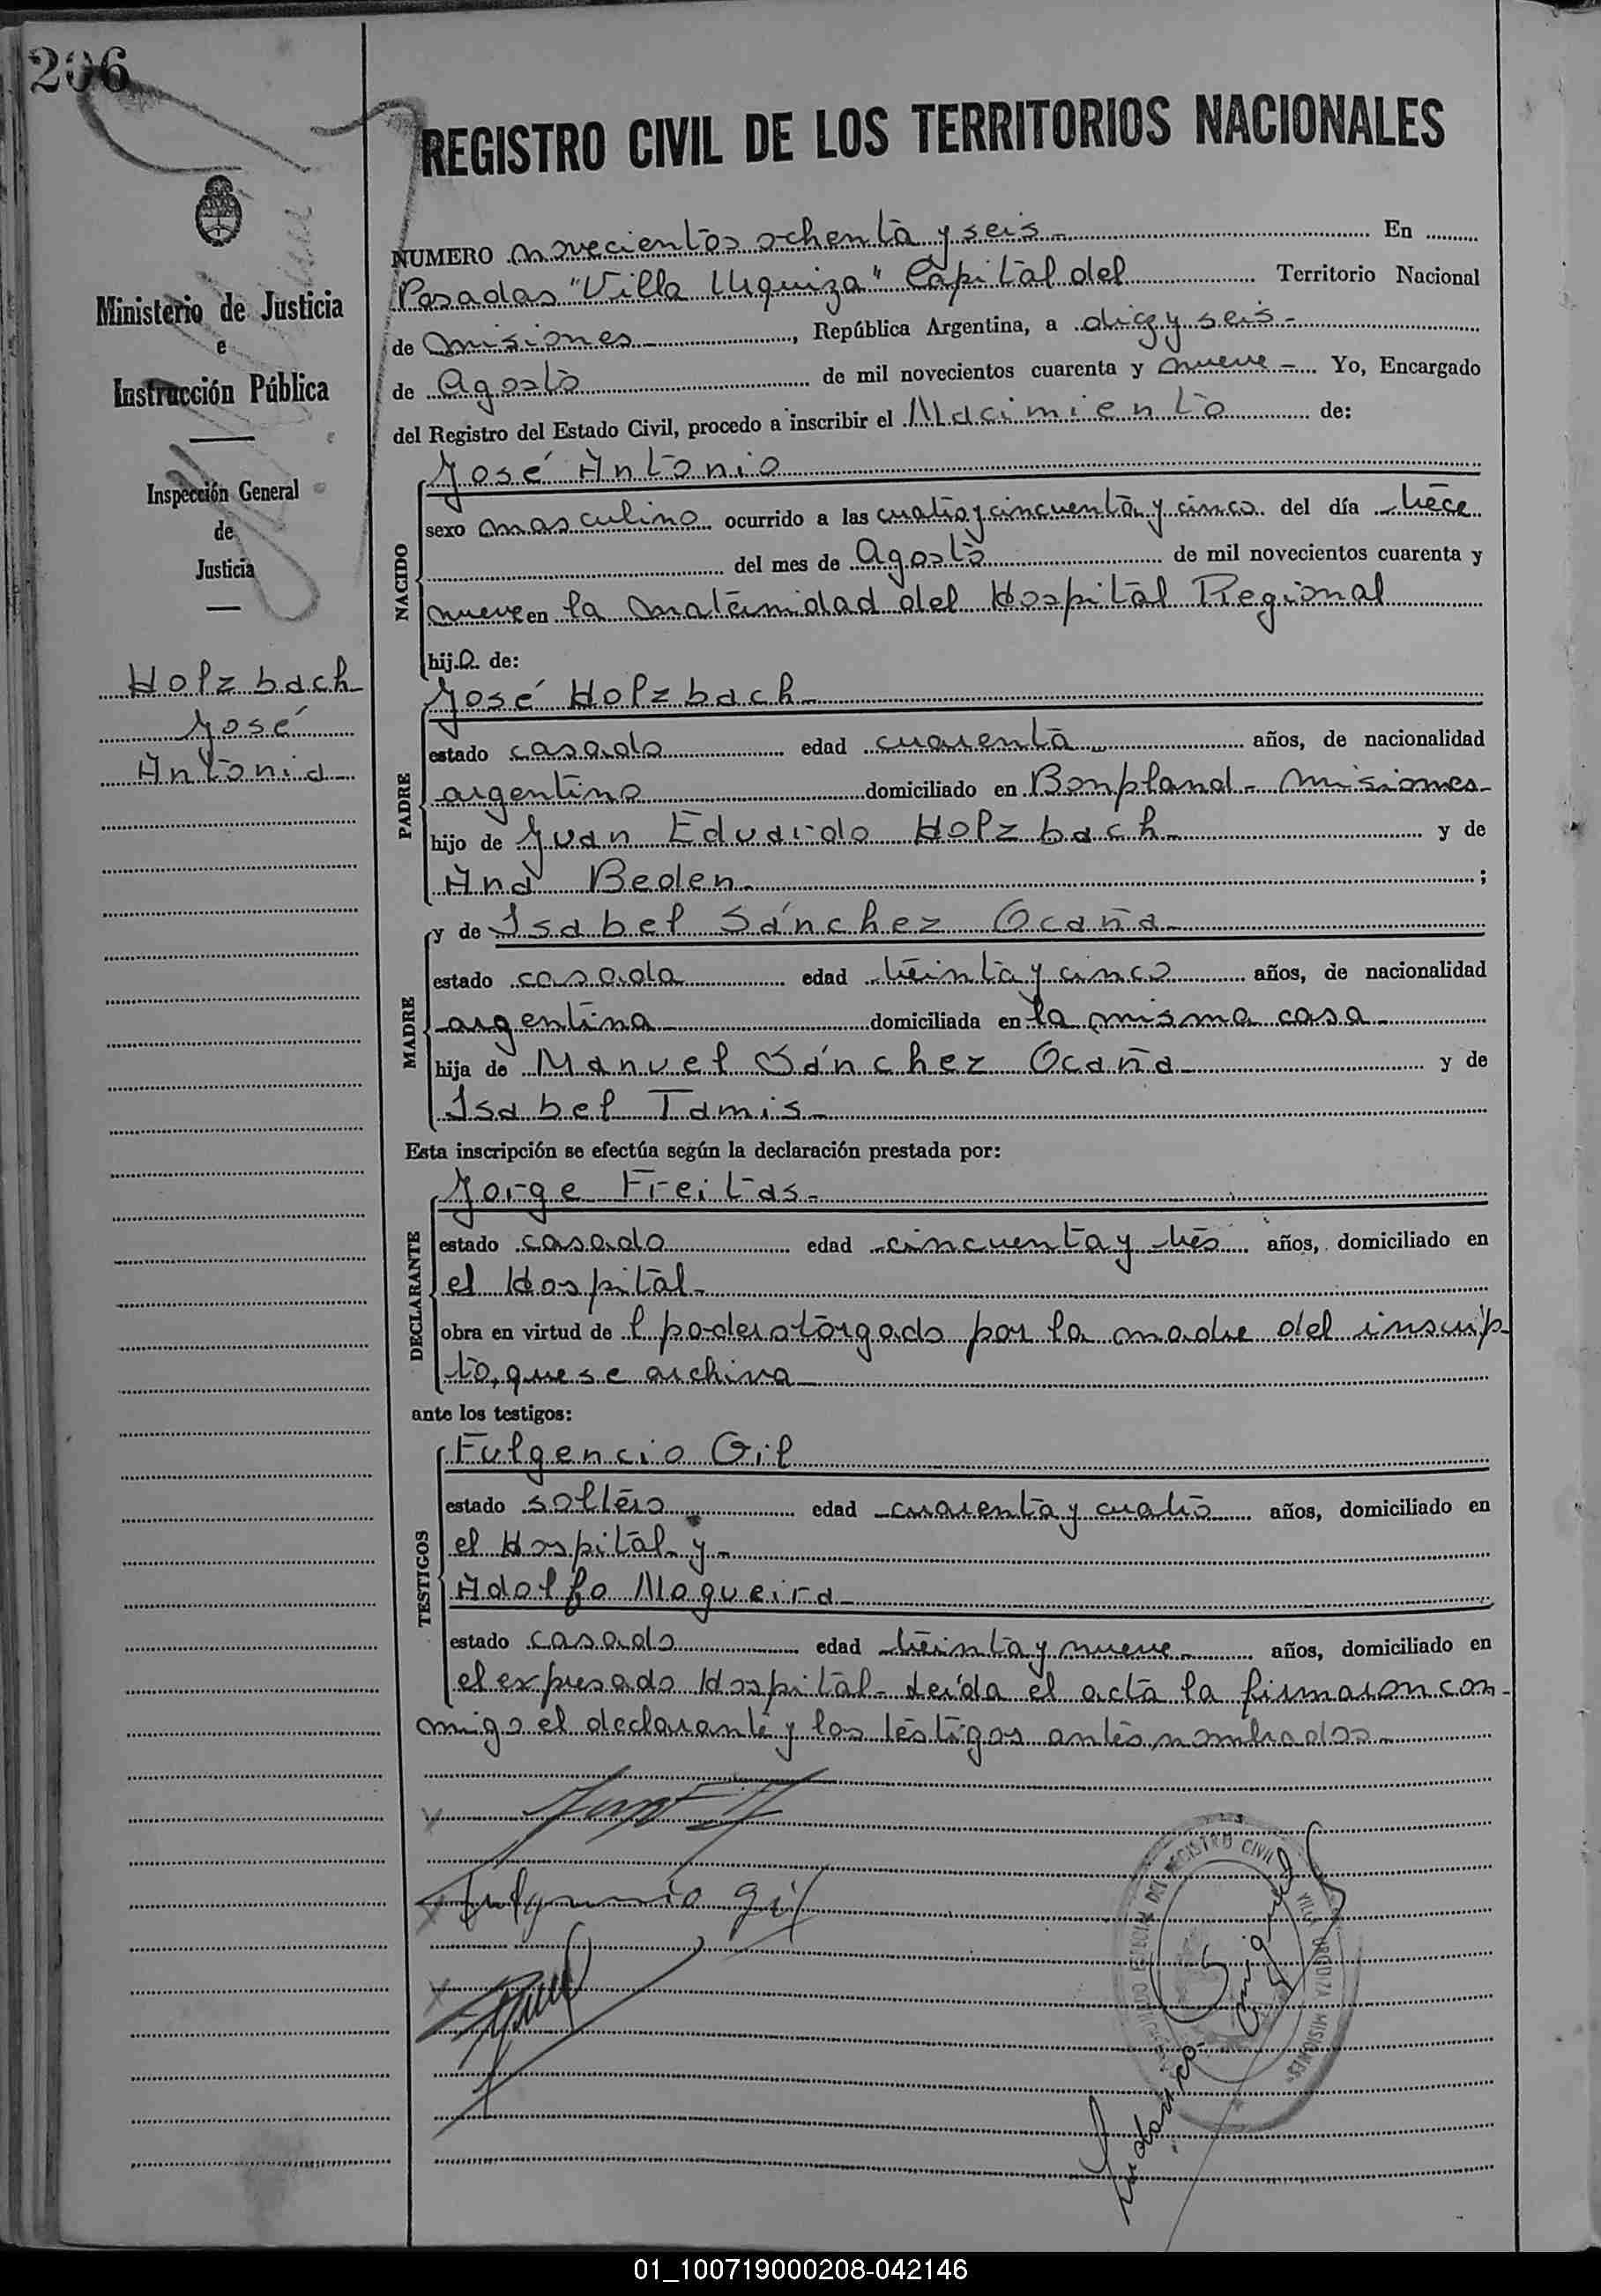 206
REGISTRO CIVIL DE LOS TERRITORIOS NACIONALES
Ministerio de Justicia
e
Instrucción Pública
Inspección General
de
Justicia
Holzbach
José
Antonio
NUMERO novecientos ochenta y seis - En
Posadas "Villa Urquiza" Capital del Territorio Nacional
de Misiones, República Argentina, a diez y seis -
de Agosto de mil novecientos cuarenta y nueve - Yo, Encargado
del Registro del Estado Civil, procedo a inscribir el Nacimiento de:
NACIDO
José Antonio
sexo masculino ocurrido a las cuatro y cincuenta y cinco del día trece
del mes de Agosto de mil novecientos cuarenta y
nueve en la maternidad del Hospital Regional
hijo de:
PADRE
José Holzbach
estado casado edad cuarenta años, de nacionalidad
argentino domiciliado en Bonpland - Misiones
hijo de Juan Eduardo Holzbach y de
Ana Beden ;
MADRE
y de Isabel Sánchez Ocaña
estado casada edad treinta y cinco años, de nacionalidad
argentina domiciliada en la misma casa
hija de Manuel Sánchez Ocaña y de
Isabel Tamis
Esta inscripción se efectúa según la declaración prestada por:
DECLARANTE
Jorge Freitas
estado casado edad cincuenta y tres años, domiciliado en
el Hospital
obra en virtud de l poder otorgado por la madre del inscrip-
to, que se archiva
ante los testigos:
TESTIGOS
Fulgencio Gil
estado soltero edad cuarenta y cuatro años, domiciliado en
el Hospital y -
Adolfo Nogueira
estado casado edad treinta y nueve años, domiciliado en
el expresado Hospital - Leída el acta la firmaron con-
migo el declarante y los testigos antes nombrados
Fulgencio Gil
REGISTRO CIVIL
VILLA URQUIZA MISIONES
01_100719000208-042146